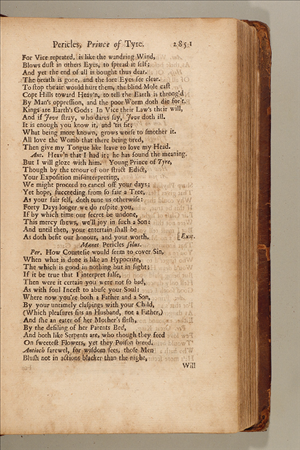 Pericles, Prince of Tyre. 2851
For Vice repeated, is like the wandring Wind,
Blows dust in others Eyes, to spread it self;
And yet the end of all is bought thus dear.
The breath is gone, and the sore Eyes see clear.
To stop the air would hurt them, the blind Mole cast
Copt Hills toward Heav'n, to tell the Earth is throng'd
By Man's oppression, and the poor Worm doth die for't.
Kings are Earth's Gods: In Vice their Law's their will,
And if Jove stray, who dares say, Jove doth ill.
It is enough you know it, and 'tis fit;
What being more known, grows worse to smother it.
All love the Womb that there being bred,
Then give my Tongue like leave to love my Head.
Ant. Heav'n that I had it; he has found the meaning.
But I will gloze with him. Young Prince of Tyre,
Though by the tenour of our strict Edict,
Your Exposition misinterpreting,
We might proceed to cancel off your days;
Yet hope, succeeding from so fair a Tree,
As your fair self, doth tune us otherwise:
Forty Days longer we do respite you,
If by which time our secret be undone,
This mercy shews, we'll joy in such a Son:
And until then, your entertain shall be
As doth befit our honour, and your worth. [Exe.
Manet Pericles solus.
Per. How Courtesie would seem to cover Sin,
When what is done is like an Hypocrite,
The which is good in nothing but in sight;
If it be true that I interpret false,
Then were it certain you were not so bad,
As with foul Incest to abuse your Soul:
Where now you're both a Father and a Son,
By your untimely claspings with your Child,
(Which pleasures fits an Husband, not a Father,)
And she an eater of her Mother's flesh,
By the defiling of her Parents Bed,
And both like Serpents are, who though they feed
On sweetest Flowers, yet they Poison breed.
Antioch farewel, for wisdom sees, those Men
Blush not in actions blacker than the night,
Will